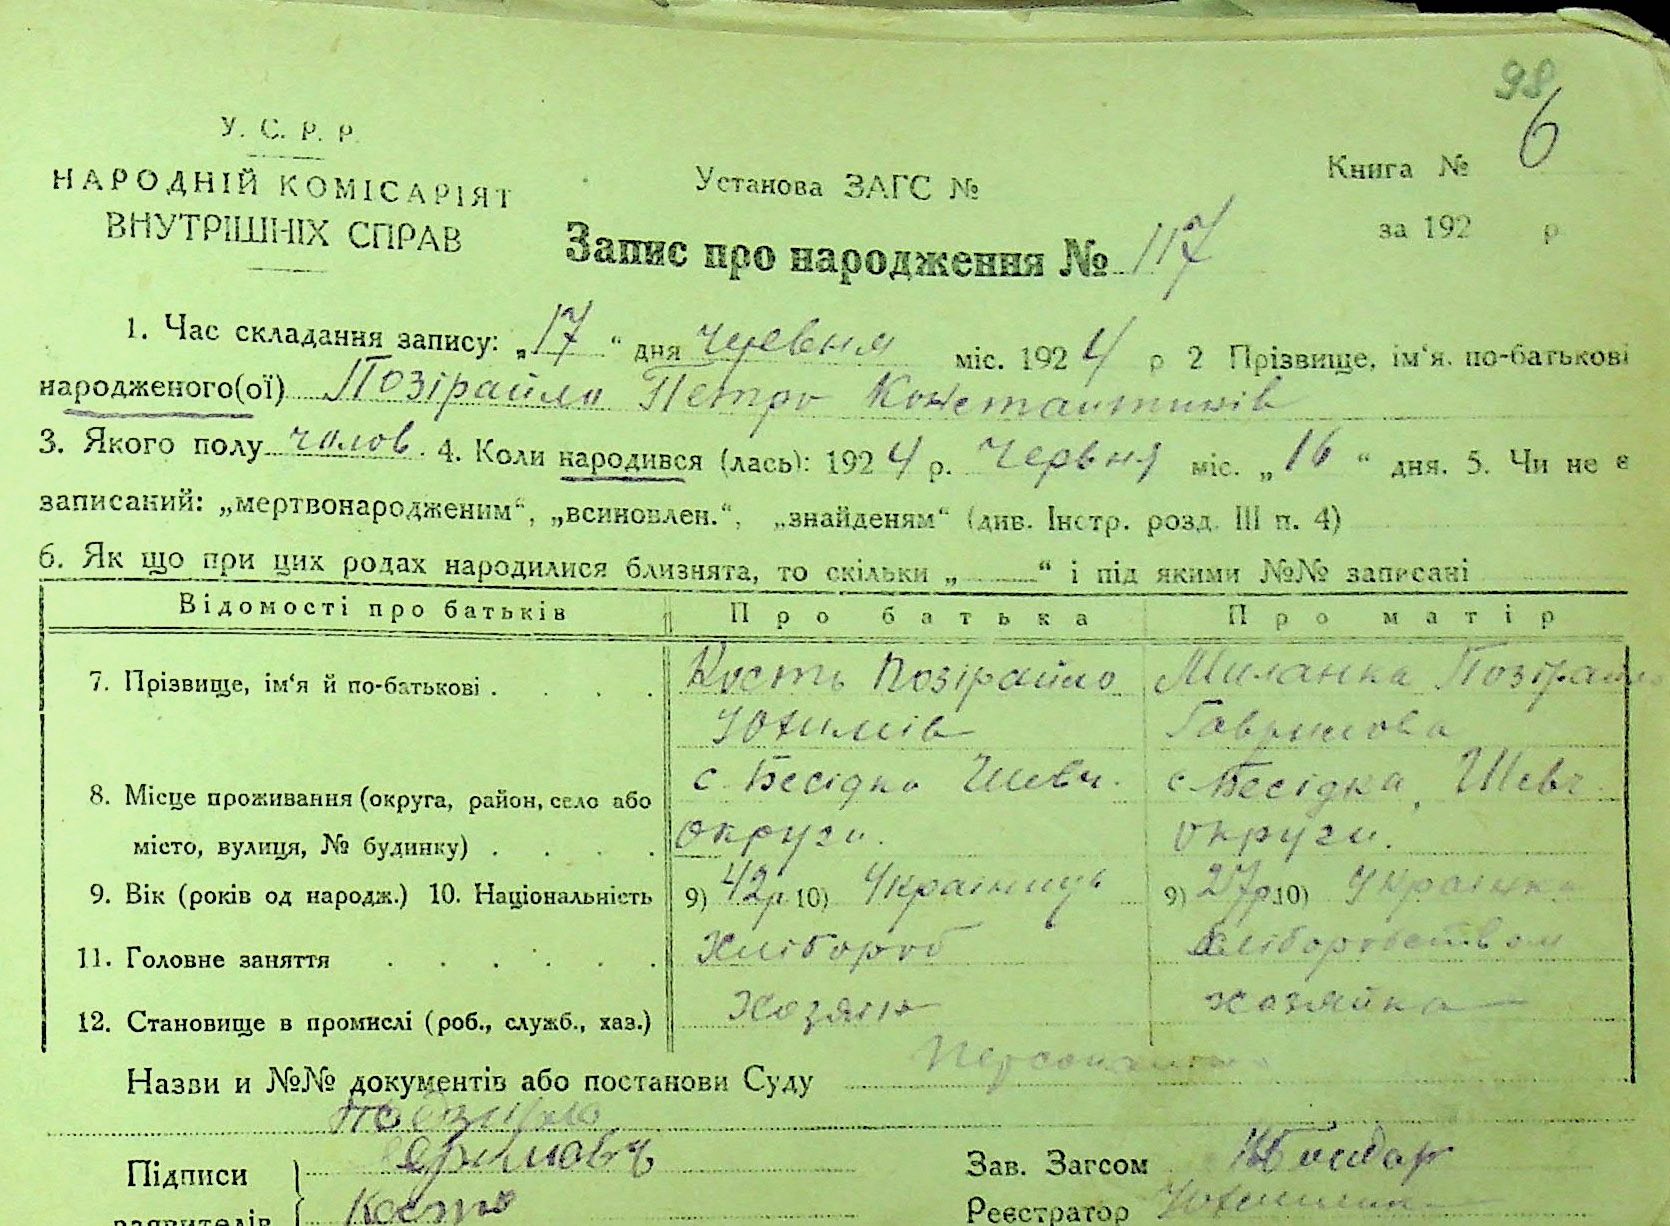 98
6
У. С. Р. Р.
НАРОДНІЙ КОМІСАРІЯТ
ВНУТРІШНІХ СПРАВ
Установа ЗАГС №
Книга №
за 192 р
Запис про народження № 117
1. Час складання запису: „17“ дня червня міс. 1924 р 2 Прізвище, ім‘я. по-батькові
народженого(ої) Позірайло Петро Константинів
3. Якого полу чолов. 4. Коли народився (лась): 1924 р. Червня міс. „16“ дня. 5. Чи не є
записаний: „мертвонародженим“, „всиновлен.“, „знайденям“ (див. Інстр. розд. III п. 4)
6. Як що при цих родах народилися близнята, то скільки „ “ і під якими №№ записані
Відомості про батьків Про батька Про матір
7. Прізвище, ім‘я й по-батькові . . . . Кость Позірайло Миланка Позірайло
Юхимів Гаврилова
8. Місце проживання (округа, район, село або с Бесідка Шевч. с Бесідка, Шевч.
місто, вулиця, № будинку) . . . . округи. округи.
9. Вік (років од народж.) 10. Національність 9) 42р 10) Українець 9) 27р 10) Українка
11. Головне заняття . . . . . . Хлібороб хліборобством
12. Становище в промислі (роб., служб., хаз.) Хозяїн хозяйка
Назви и №№ документів або постанови Суду
Підписи
заявителів Кость
Зав. Загсом
Реєстратор